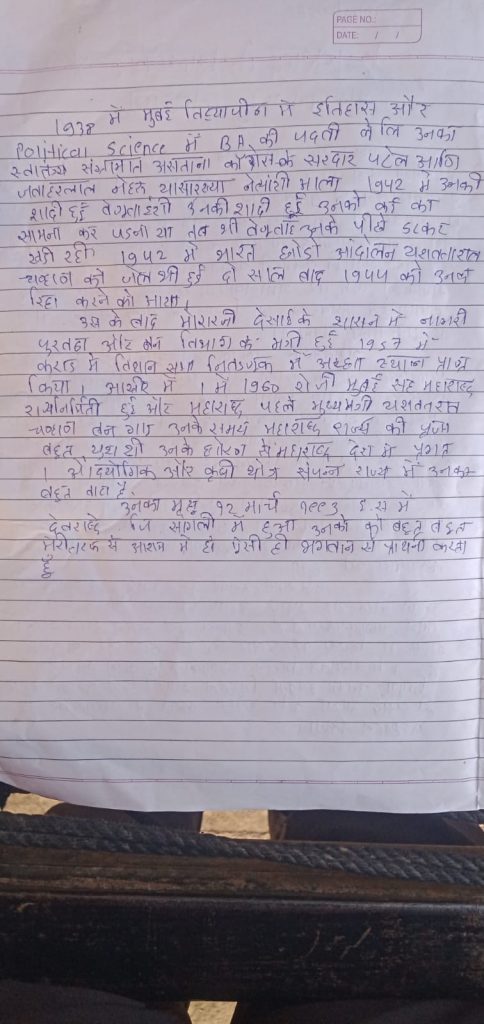 PAGE NO.:
DATE: / /
1938 में मुंबई विद्यापीठ में इतिहास और
Political Science में BA की पदती ले लि उनका
स्वातंत्र्य संग्रामात असताना काँग्रेसके सरदार पटेल आणि
जवाहरलाल नेहरू यासारख्या नेत्यांशी भाला 1942 में उनकी
शादी हुई वेणूताईशी उनकी शादी हुई उनको कई का
सामना कर पडना था तब भी वेणूताई उनके पीछे डटकर
खडी रही 1942 में भारत छोडो आंदोलन यशवंतराव
चव्हाण को जेल भी हुई दो साल बाद 1944 को उनको
रिहा करने को
उस के बाद मोरारजी देसाई के शासन में नागरी
पुरवठा और वन विभाग के मंत्री हुई 1957 में
कराड में विधान सभा में स्थान प्राप्त
किया। आखीर में 1 में 1960 रोजी मुंबई सह महाराष्ट्र
हुई और महाराष्ट्र पहले मुख्यमंत्री यशवंतराव
चव्हाण बन गए उनके समय महाराष्ट्र राज्य की
बहुत उनके धोरण से महाराष्ट्र देश में प्रगत
। औदयोगिक और कृषी क्षेत्र संपन्न राज्य में उनका
बहुत वाटा है.
उनका मृत्यू १२ मार्च १९९३ इ.स में
देवराष्ट्रे जि सांगली में हुआ उनको को बहुत बहुत
मेरी तरफ से में हो ऐसी ही भगवान से प्रार्थना करता
हूँ